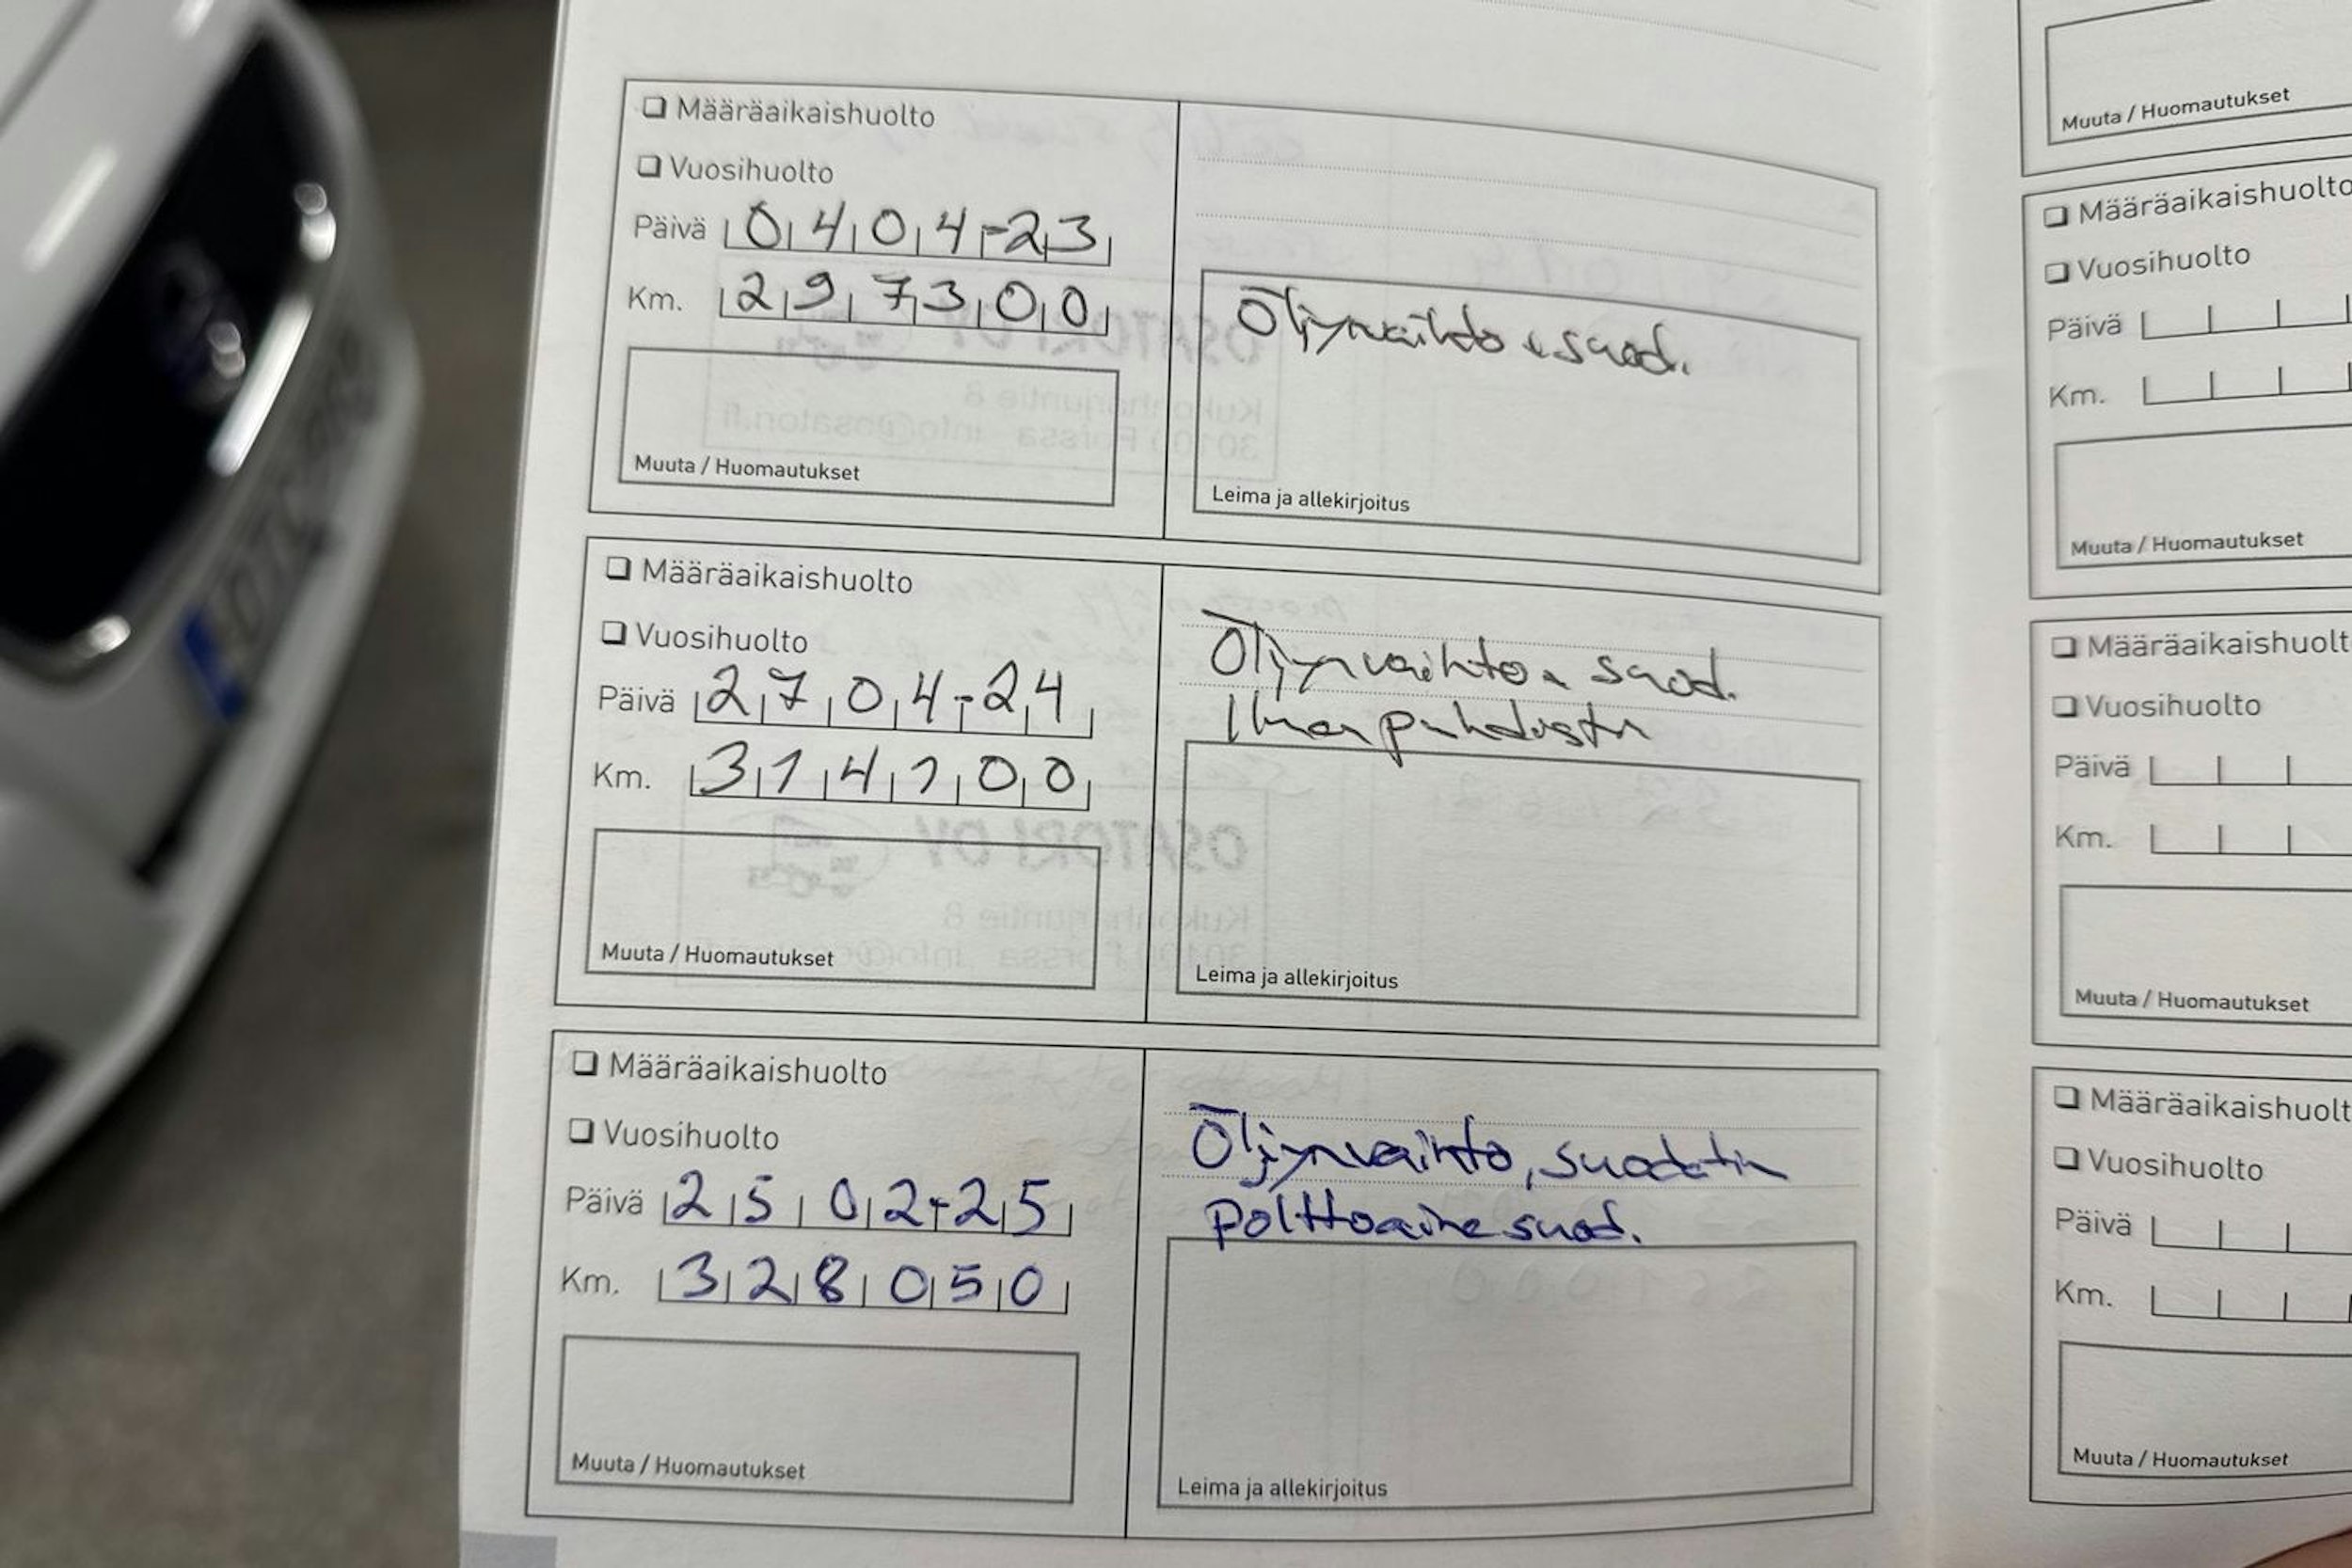 ❏ Määräaikaishuolto
❏ Vuosihuolto
Päivä 0404-23
Km. 297300
Muuta / Huomautukset
Öljynvaihto + suod.
Leima ja allekirjoitus
❏ Määräaikaishuolto
❏ Vuosihuolto
Päivä 2704-24
Km. 314100
Muuta / Huomautukset
Öljynvaihto + suod.
Leima ja allekirjoitus
❏ Määräaikaishuolto
❏ Vuosihuolto
Päivä 2502-25
Km. 328050
Muuta / Huomautukset
Öljynvaihto, suodatin
polttoaine suod.
Leima ja allekirjoitus
Muuta / Huomautukset
❏ Määräaikaishuolto
❏ Vuosihuolto
Päivä
Km.
Muuta / Huomautukset
❏ Määräaikaishuolt
❏ Vuosihuolto
Päivä
Km.
Muuta / Huomautukset
❏ Määräaikaishuolt
❏ Vuosihuolto
Päivä
Km.
Muuta / Huomautukset